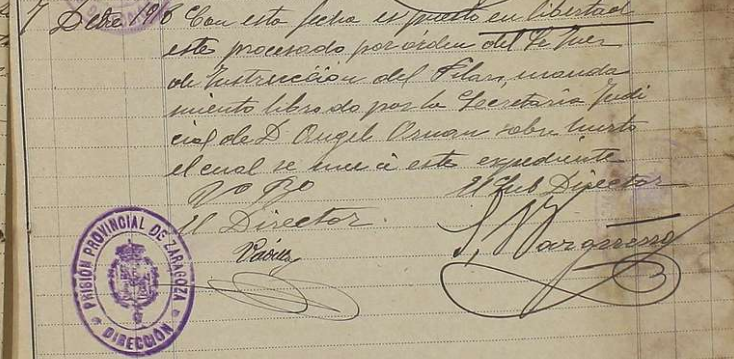 7 Dcbre 1916 Con esta fecha es puesto en libertad
este procesado por orden del Sr Juez
de Instrucción del Pilar, manda
miento librado por la Secretaría Judi
cial de D. Angel Arnau sobre hurto
el cual se une á este expediente
Vº Bº El Sub Director
El Director.
PRISIÓN PROVINCIAL DE ZARAGOZA
DIRECCIÓN